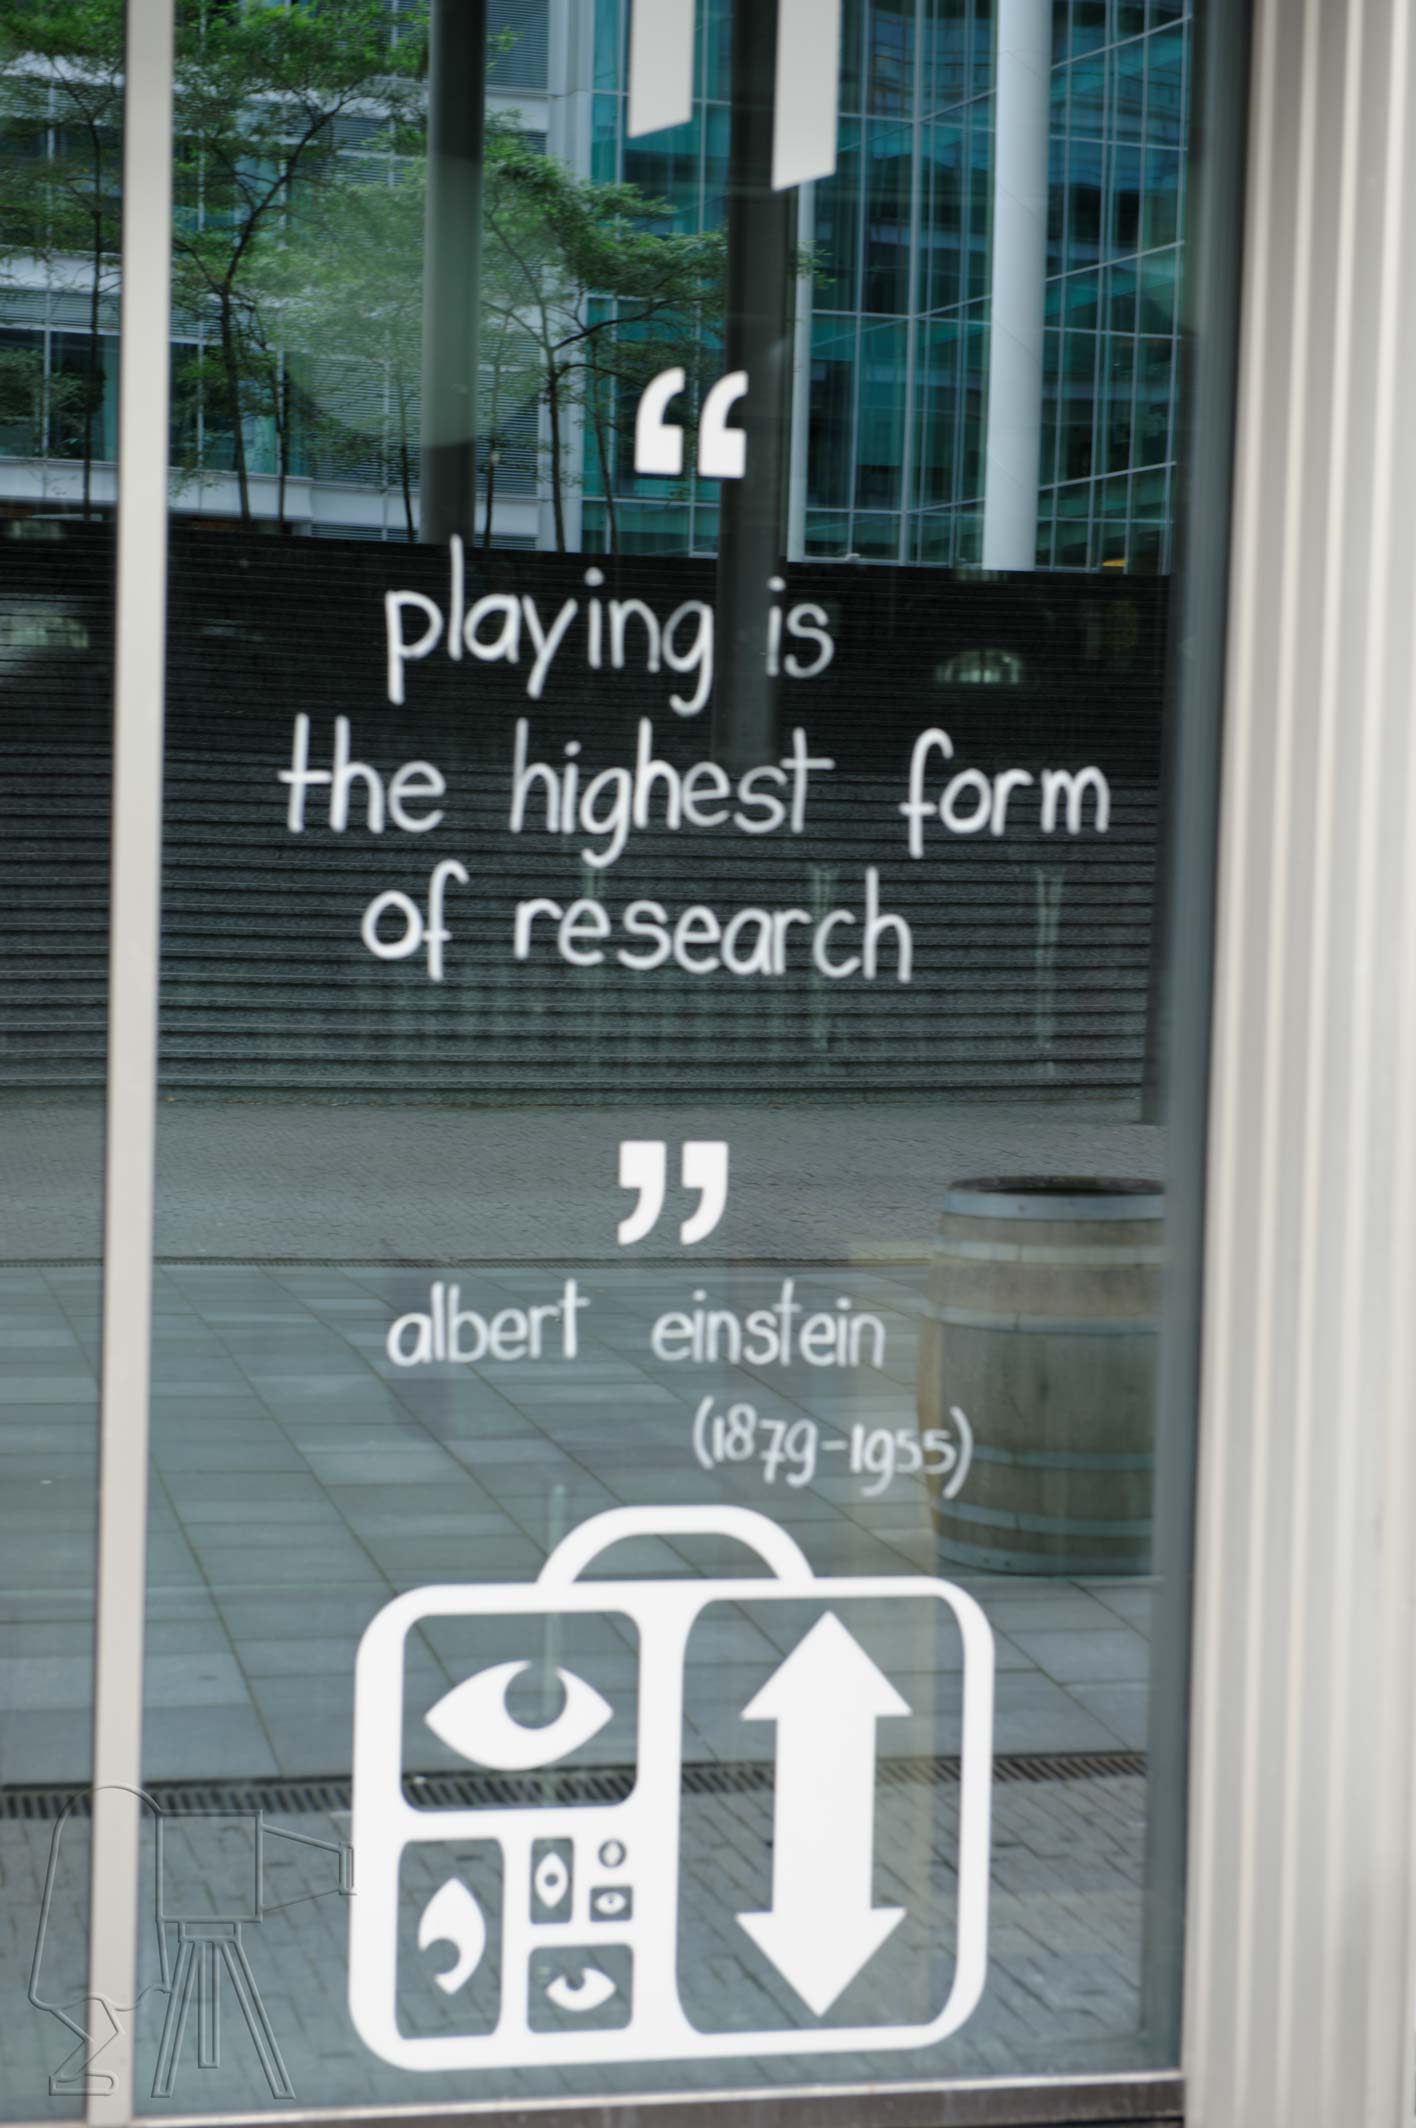 “
playing is
the highest form
of research
”
albert einstein
(1879-1955)